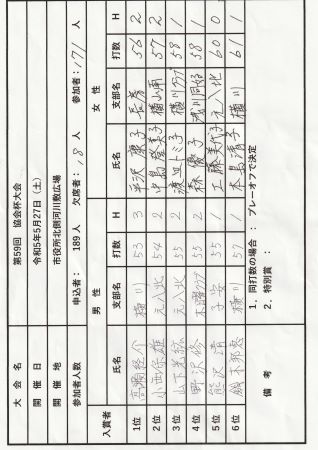 大会名 第59回 協会杯大会
開催日 令和5年5月27日（土）
開催地 市役所北側河川敷広場
参加者人数 申込者： 189人 欠席者： 18人 参加者： 171人
入賞者 男性 女性
氏名 支部名 打数 H 氏名 支部名 打数 H
1位 高橋経介 横川 53 3 平沢康子 長房 56 2
2位 小西保雄 元八北 54 2 中島登美子 横山南 57 2
3位 山下光紘 元八北 55 2 渡辺トミ子 横川クラブ 58 1
4位 野沢修 木曜クラブ 55 2 森優子 浅川同好 58 1
5位 熊沢清 子安 55 1 工藤美代子 元八北 60 0
6位 鈴木邦恵 横川 57 1 本島清子 横川 61 1
備考 1．同打数の場合 ： プレーオフで決定
2．特別賞 ：